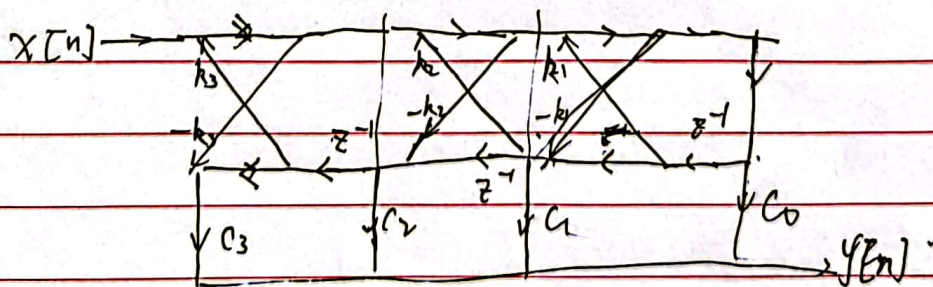 x[n]
k3 k2 k1
-k3 z^-1 -k2 -k1 z^-1
z^-1
C3 C2 C1 C0
y[n]